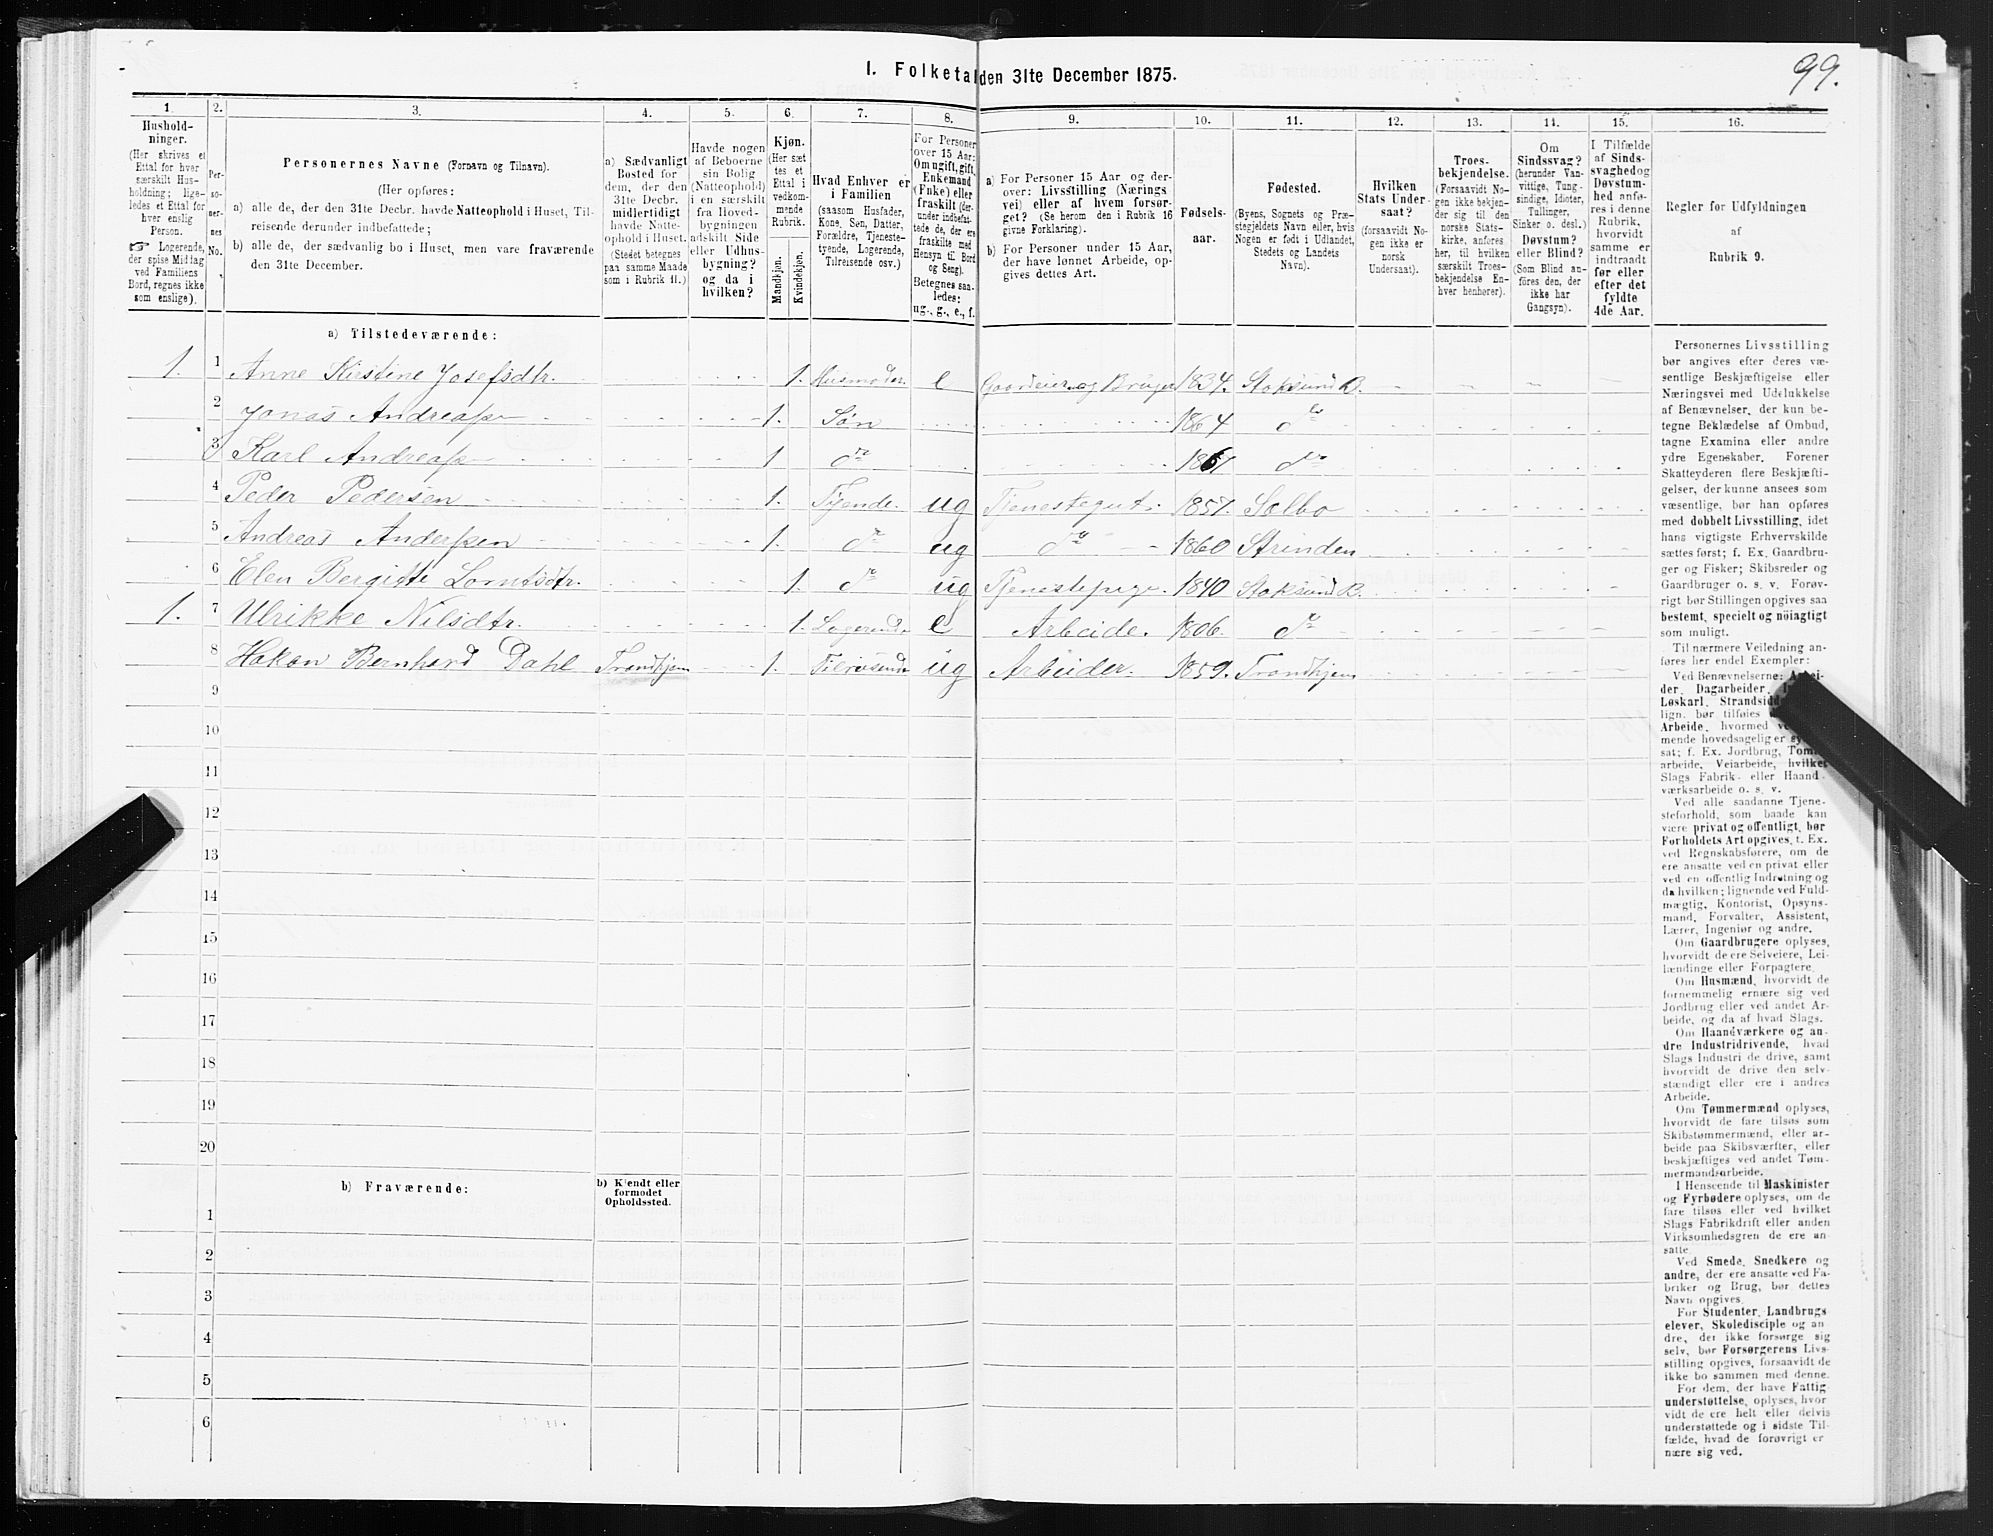 99.
I. Folketal den 31te December 1875.
1. 2. 3. 4. 5. 6. 7. 8. 9. 10. 11. 12. 13. 14. 15. 16.
Hushold-
ninger.
(Her skrives et
Ettal for hver
særskilt Hus-
holdning; lige-
ledes et Ettal for
hver enslig
Person.
☞ Logerende,
der spise Middag
ved Familiens
Bord, regnes ikke
som enslige).
Per-
so-
ner-
nes
No.
Personernes Navne (Fornavn og Tilnavn).
(Her opføres:
a) alle de, der den 31te Decbr. havde Natteophold i Huset, Til-
reisende derunder indbefattede;
b) alle de, der sædvanlig bo i Huset, men vare fraværende
den 31te December.
a) Sædvanligt
Bosted for
dem, der den
31te Decbr.
midlertidigt
havde Natte-
ophold i Huset.
(Stedet betegnes
paa samme Maade
som i Rubrik 11.)
Havde nogen
af Beboerne
sin Bolig
(Natteophold)
i en særskilt
fra Hoved-
bygningen
adskilt Side
eller Udhus-
bygning?
og da i
hvilken?
Kjøn.
(Her sæt-
tes et
Ettal i
vedkom-
mende
Rubrik.
Mandkjøn.
Kvindekjøn.
Hvad Enhver er
i Familien
(saasom Husfader,
Kone, Søn, Datter,
Forældre, Tjeneste-
tyende, Logerende,
Tilreisende osv.)
For Personer
over 15 Aar:
Om ugift, gift,
Enkemand
(Enke) eller
fraskilt (der-
under indbefat-
tede de, der ere
fraskilte med
Hensyn til Bord
og Seng).
Betegnes saa-
ledes:
ug., g., e., f.
a) For Personer 15 Aar og der-
over: Livsstilling (Nærings-
vei) eller af hvem forsør-
get? (Se herom den i Rubrik 16
givne Forklaring).
b) For Personer under 15 Aar,
der have lønnet Arbeide, op-
gives dettes Art.
Fødsels-
aar.
Fødested.
(Byens, Sognets og Præ-
stegjeldets Navn eller, hvis
Nogen er født i Udlandet,
Stedets og Landets
Navn).
Hvilken
Stats Under-
saat?
(forsaavidt No-
gen ikke er
norsk
Undersaat).
Troes-
bekjendelse.
(Forsaavidt No-
gen ikke bekjen-
der sig til den
norske Stats-
kirke, anføres
her, til hvilken
særskilt Troes-
bekjendelse En-
hver henhører).
Om
Sindssvag?
(herunder Van-
vittige, Tung-
sindige, Idioter,
Tullinger,
Sinker o. desl.)
Døvstum?
eller Blind?
(Som Blind an-
føres den, der
ikke har
Gangsyn).
I Tilfælde
af Sinds-
svaghed og
Døvstum-
hed anfø-
res i denne
Rubrik,
hvorvidt
samme er
indtraadt
før eller
efter det
fyldte
4de Aar.
Regler for Udfyldningen
af
Rubrik 9.
a) Tilstedeværende:
1. 1 Anne Kirstine Josefsdtr. 1. Husmoder e Gaardeier og Bruger 1834. Stoksund B.
2 Jonas Andreass 1. Søn 1864 do
3 Karl Andreass 1 do 1861 do
4 Peder Pedersen 1. Tjende. ug Tjenestegut. 1857. Sælbo
5 Andreas Anderssen 1. do ug do 1860 Strinden
6 Elen Bergitte Lorntsdtr. 1. do ug Tjenestepige. 1840 Stoksund B.
1. 7 Ulrikke Nilsdtr. 1. Logerende e Arbeide. 1806. do
8 Hakon Bernhard Dahl Trondhjem 1. Tilreisende ug Arbeider. 1859. Trondhjem
9
10
11
12
13
14
15
16
17
18
19
20
b) Fraværende:
b) Kjendt eller
formodet
Opholdssted.
1
2
3
4
5
6
Personernes Livsstilling
bør angives efter deres væ-
sentlige Beskjæftigelse eller
Næringsvei med Udelukkelse
af Benævnelser, der kun be-
tegne Beklædelse af Ombud,
tagne Examina eller andre
ydre Egenskaber. Forener
Skatteyderen flere Beskjæfti-
gelser, der kunne ansees som
væsentlige, bør han opføres
med dobbelt Livsstilling, idet
hans vigtigste Erhvervskilde
sættes først; f. Ex. Gaardbru-
ger og Fisker; Skibsreder og
Gaardbruger o. s. v. Forøv-
rigt bør Stillingen opgives saa
bestemt, specielt og nöiagtigt
som muligt.
Til nærmere Veiledning an-
føres her endel Exempler:
Ved Benævnelserne: Arbei-
der, Dagarbeider,
Løskarl, Strandsidde
lign. bør tilføies
Arbeide, hvormed
mende hovedsagelig er
sat; f. Ex. Jordbrug, Tom
arbeide, Veiarbeide, hvilket
Slags Fabrik- eller Haand-
værksarbeide o. s. v.
Ved alle saadanne Tjene-
steforhold, som baade kan
være privat og offentligt, bør
Forholdets Art opgives, t. Ex.
ved Regnskabsførere, om de
ere ansatte ved en privat eller
ved en offentlig Indretning og
da hvilken; lignende ved Fuld-
mægtig, Kontorist, Opsyns-
mand, Forvalter, Assistent,
Lærer, Ingeniør og andre.
Om Gaardbrugere oplyses,
hvorvidt de ere Selveiere, Lei-
lændinge eller Forpagtere.
Om Husmænd, hvorvidt de
fornemmelig ernære sig ved
Jordbrug eller ved andet Ar-
beide, og da af hvad Slags.
Om Haandværkere og an-
dre Industridrivende, hvad
Slags Industri de drive, samt
hvorvidt de drive den selv-
stændigt eller ere i andres
Arbeide.
Om Tømmermænd oplyses,
hvorvidt de fare tilsøs som
Skibstømmermænd, eller ar-
beide paa Skibsværfter, eller
beskjæftiges ved andet Tøm-
mermandsarbeide.
I Henseende til Maskinister
og Fyrbødere oplyses, om de
fare tilsøs eller ved hvilket
Slags Fabrikdrift eller anden
Virksomhedsgren de ere an-
satte.
Ved Smede, Snedkere og
andre, der ere ansatte ved Fa-
briker og Brug, bør dettes
Navn opgives.
For Studenter, Landbrugs-
elever, Skoledisciple og an-
dre, der ikke forsørge sig
selv, bør Forsørgerens Livs-
stilling opgives, forsaavidt de
ikke bo sammen med denne.
For dem, der have Fattig-
understøttelse, oplyses, hvor-
vidt de ere helt eller delvis
understøttede og i sidste Til-
fælde, hvad de forøvrigt er-
nære sig ved.